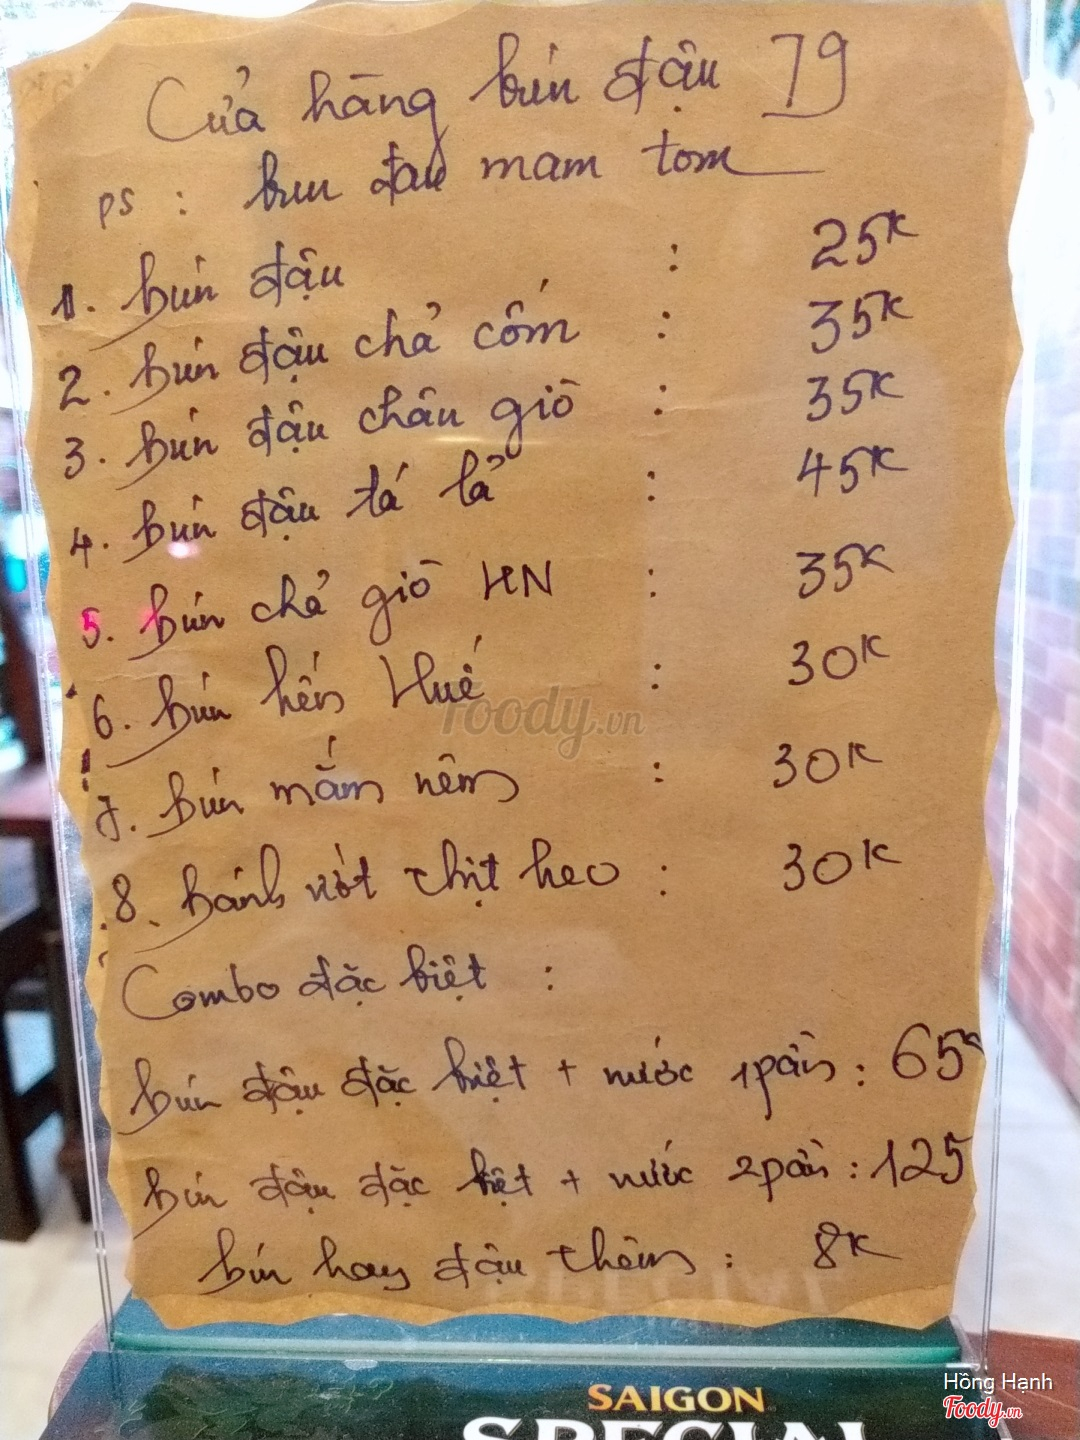 Cửa hàng bún đậu 79
PS : bun đau mam tom
1. bún đậu : 25K
2. bún đậu chả cốm : 35K
3. bún đậu chân giò : 35K
4. bún đậu tá lả : 45K
5. bún chả giò HN : 35K
6. bún hến Huế : 30K
7. bún mắm nêm : 30K
8. bánh ướt thịt heo : 30K
Combo đặc biệt :
bún đậu đặc biệt + nước 1phần : 65K
bún đậu đặc biệt + nước 2phần : 125
bún hay đậu thêm : 8K
Foody.vn
SAIGON
SPECIAL
Hồng Hạnh
Foody.vn